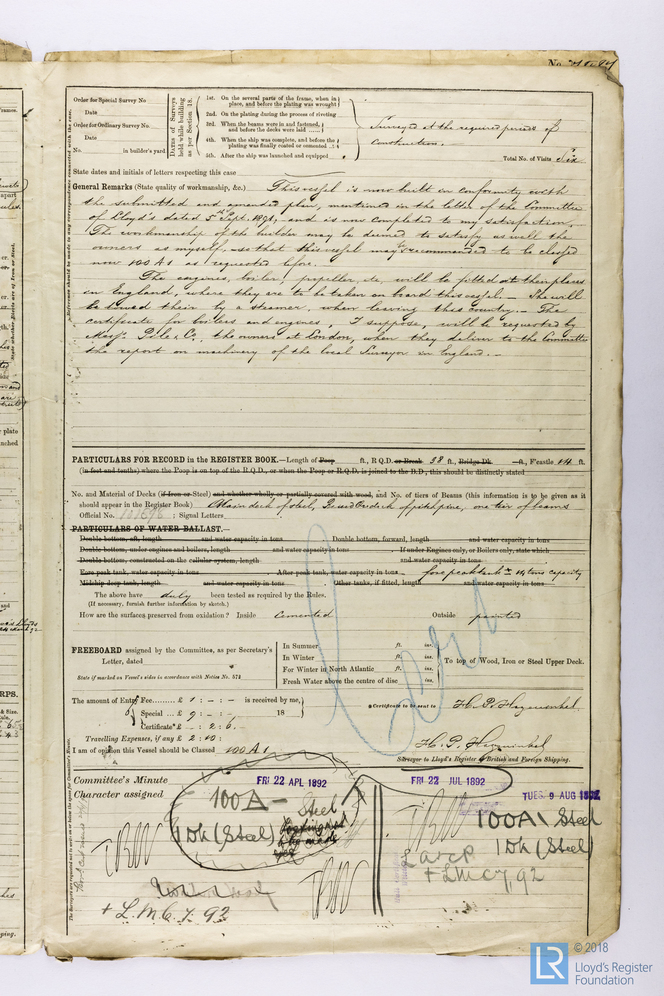 Order for Special Survey No
Date
Order for Ordinary Survey No.
Date
No. in builder's yard
Dates of Surveys held while building as per Section 18.
1st. On the several parts of the frame, when in place, and before the plating was wrought
2nd. On the plating during the process of riveting
3rd. When the beams were in and fastened, and before the decks were laid ......
4th. When the ship was complete, and before the plating was finally coated or cemented ..
5th. After the ship was launched and equipped
Surveyed at the required periods of
construction.
Total No. of Visits Six
State dates and initials of letters respecting this case
General Remarks (State quality of workmanship, &c.) This vessel is now built in conformity with
the submitted and amended plan, mentioned in the letter of the Committee
of Lloyd's dated 5th Sept. 1891, and is now completed to my satisfaction.
The workmanship of the builder may be deemed to satisfy as well the
owners as myself, so that this vessel may be recommended to be classed
now 100 A1 as requested before.
The engines, boiler, propeller, etc, will be fitted at their places
in England, where they are to be taken on board this vessel. — She will
be towed their by a steamer, when leaving this country. — The
certificate for boilers and engines, I suppose, will be requested by
Messrs. Pile & Co, the owners at London, when they deliver to the Committee
the report on machinery of the local Surveyor in England. —
PARTICULARS FOR RECORD in the REGISTER BOOK.—Length of Poop ft., R.Q.D. or Break 38 ft., Bridge Dk. —ft., F'castle 14 ft.
(in feet and tenths) where the Poop is on top of the R.Q.D., or when the Poop or R.Q.D. is joined to the B.D., this should be distinctly stated
No. and Material of Decks (if Iron or Steel) and whether wholly or partially covered with wood, and No. of tiers of Beams (this information is to be given as it
should appear in the Register Book) Main deck of steel, of pitchpine, one tier of beams
Official No. ; Signal Letters
PARTICULARS OF WATER BALLAST.—
Double bottom, aft, length and water capacity in tons Double bottom, forward, length and water capacity in tons
Double bottom, under engines and boilers, length and water capacity in tons If under Engines only, or Boilers only, state which
Double bottom, constructed on the cellular system, length and water capacity in tons
Fore peak tank, water capacity in tons After peak tank, water capacity in tons forepeaktank 14 tons capacity
Midship deep tank, length and water capacity in tons Other tanks, if fitted, length and water capacity in tons
The above have duly been tested as required by the Rules.
(If necessary, furnish further information by sketch.)
How are the surfaces preserved from oxidation? Inside Cemented Outside painted
FREEBOARD assigned by the Committee, as per Secretary's
Letter, dated
State if marked on Vessel's sides in accordance with Notice No. 572
In Summer ft. ins.
In Winter ft. ins.
For Winter in North Atlantic ft. ins.
Fresh Water above the centre of disc ins.
To top of Wood, Iron or Steel Upper Deck.
The amount of Entry Fee........ £ 1 : - : - is received by me,
Special ... £ 9 : - : - 18
Certificate £ - : 2 : 6.
Travelling Expenses, if any £ 2 : 10 :
Certificate to be sent to H. P. Hazewinkel
I am of opinion this Vessel should be Classed 100 A1
H. P. Hazewinkel
Surveyor to Lloyd's Register of British and Foreign Shipping.
Committee's Minute
Character assigned
FRI 22 APL 1892
FRI 22 JUL 1892
TUES 9 AUG 1892
100A— Steel
1 Dk (Steel)
+ L.M.C. 7. 92
100A1 Steel
1 Dk (Steel)
+ LMC 7, 92
© 2018
LR
Lloyd's Register
Foundation